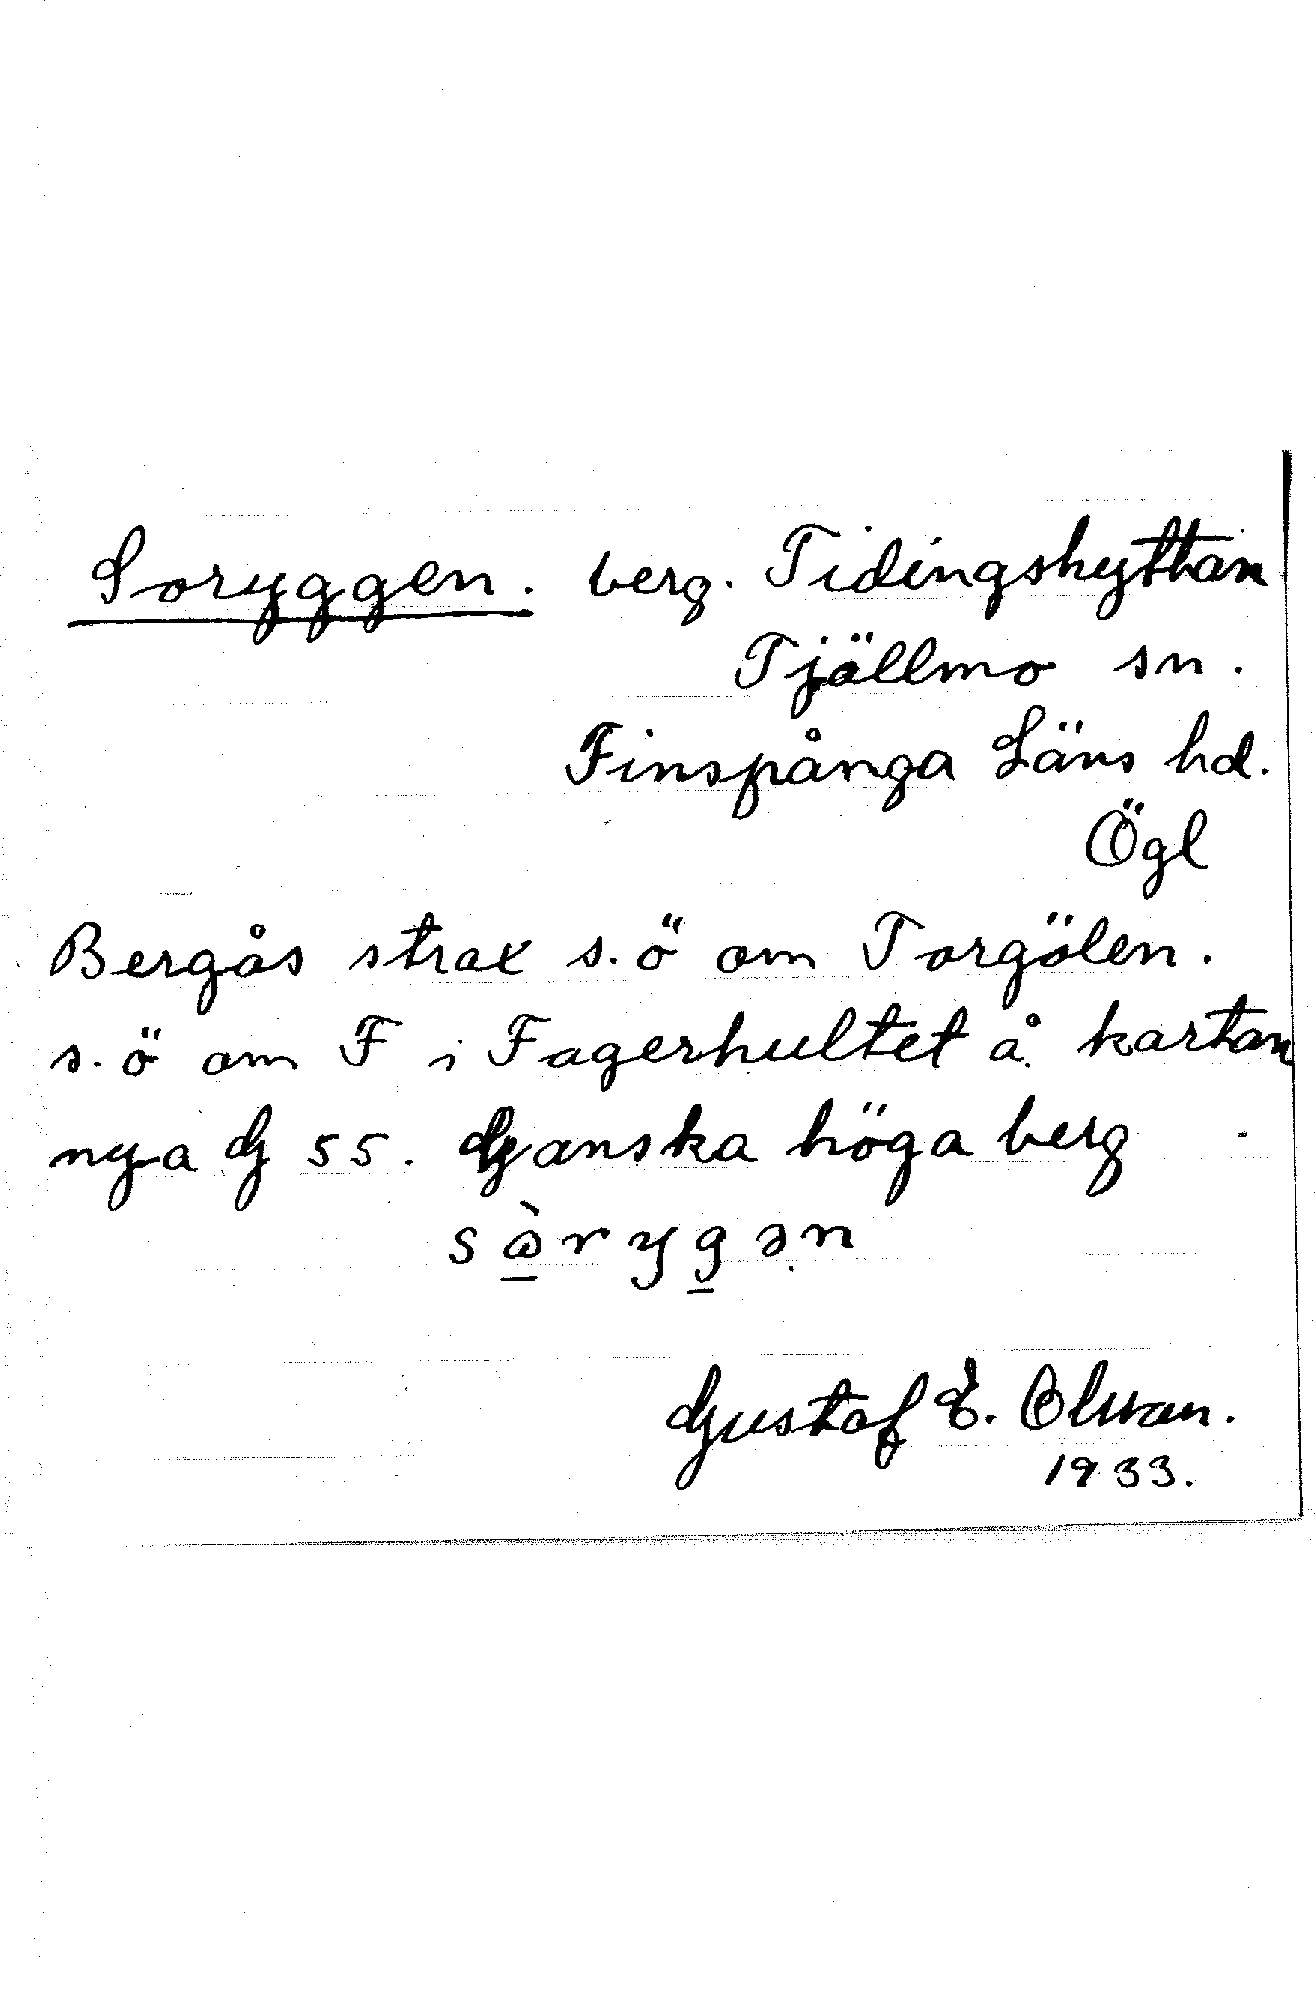 Soryggen. berg. Tidingshyttan
Tjällmo sn.
Finspånga Läns hd.
Ögl
Bergås strax s.ö om Torgölen.
s.ö om F i Fagerhultet å kartan
nya G 55. Ganska höga berg
Gustaf E. Olsson.
1933.